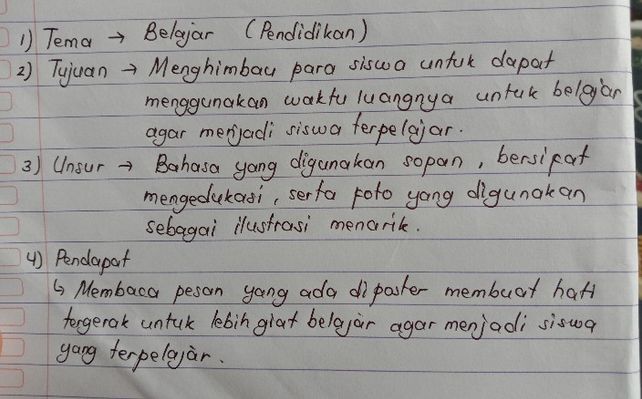 1) Tema → Belajar (Pendidikan)
2) Tujuan → Menghimbau para siswa untuk dapat
menggunakan waktu luangnya untuk belajar
agar menjadi siswa terpelajar.
3) Unsur → Bahasa yang digunakan sopan, bersifat
mengedukasi, serta foto yang digunakan
sebagai ilustrasi menarik.
4) Pendapat
↳ Membaca pesan yang ada di poster membuat hati
tergerak untuk lebih giat belajar agar menjadi siswa
yang terpelajar.